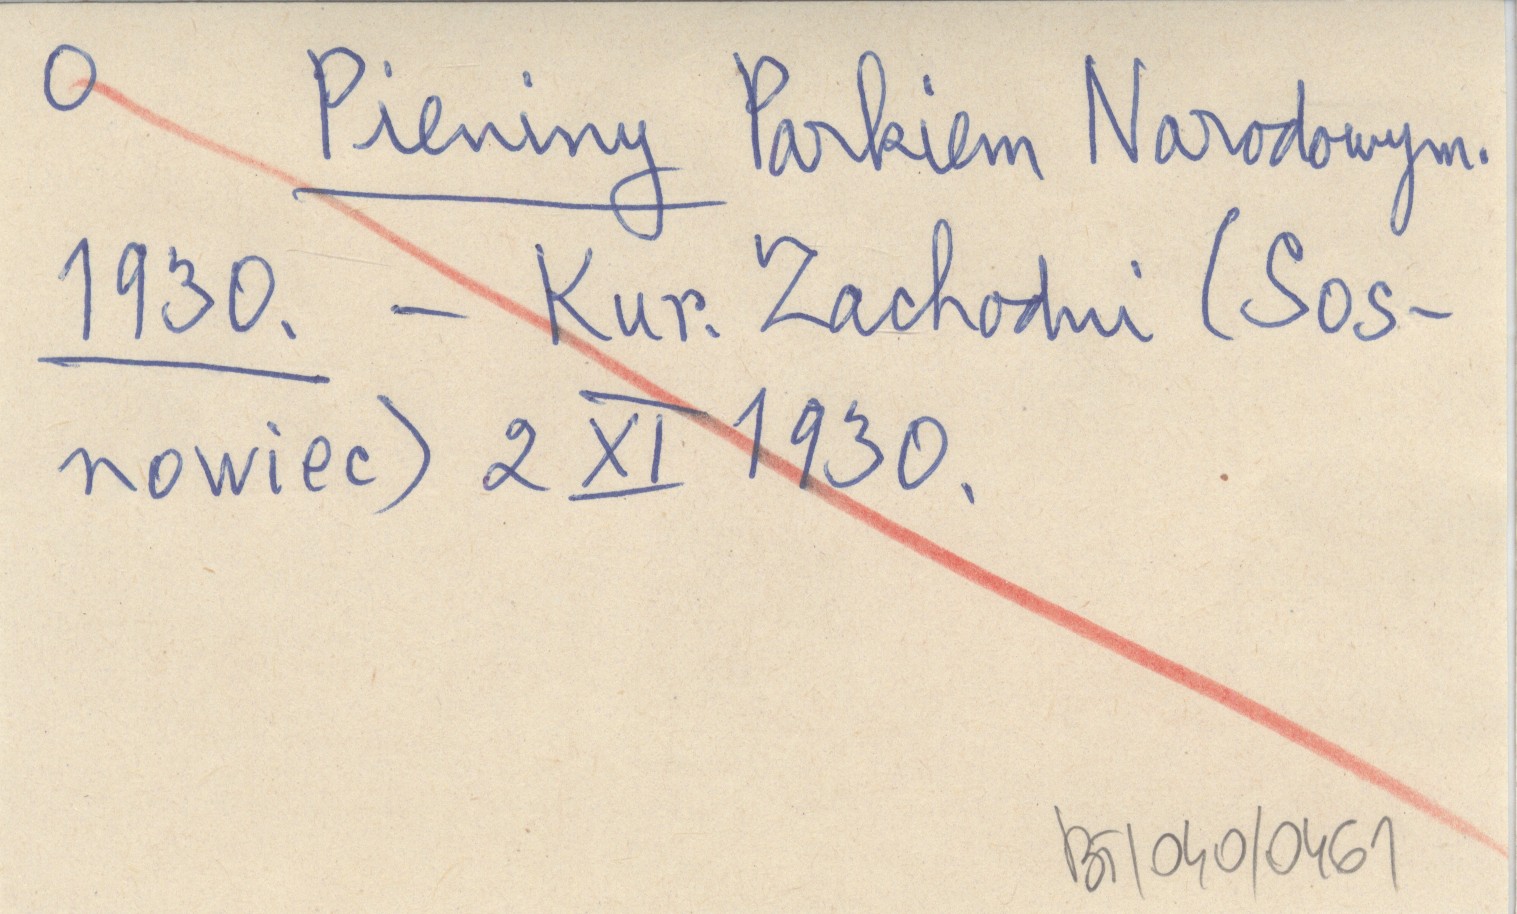 O Pieniny Parkiem Narodowym.
1930. – Kur. Zachodni (Sos-
nowiec) 2 XI 1930.
BT/040/0461